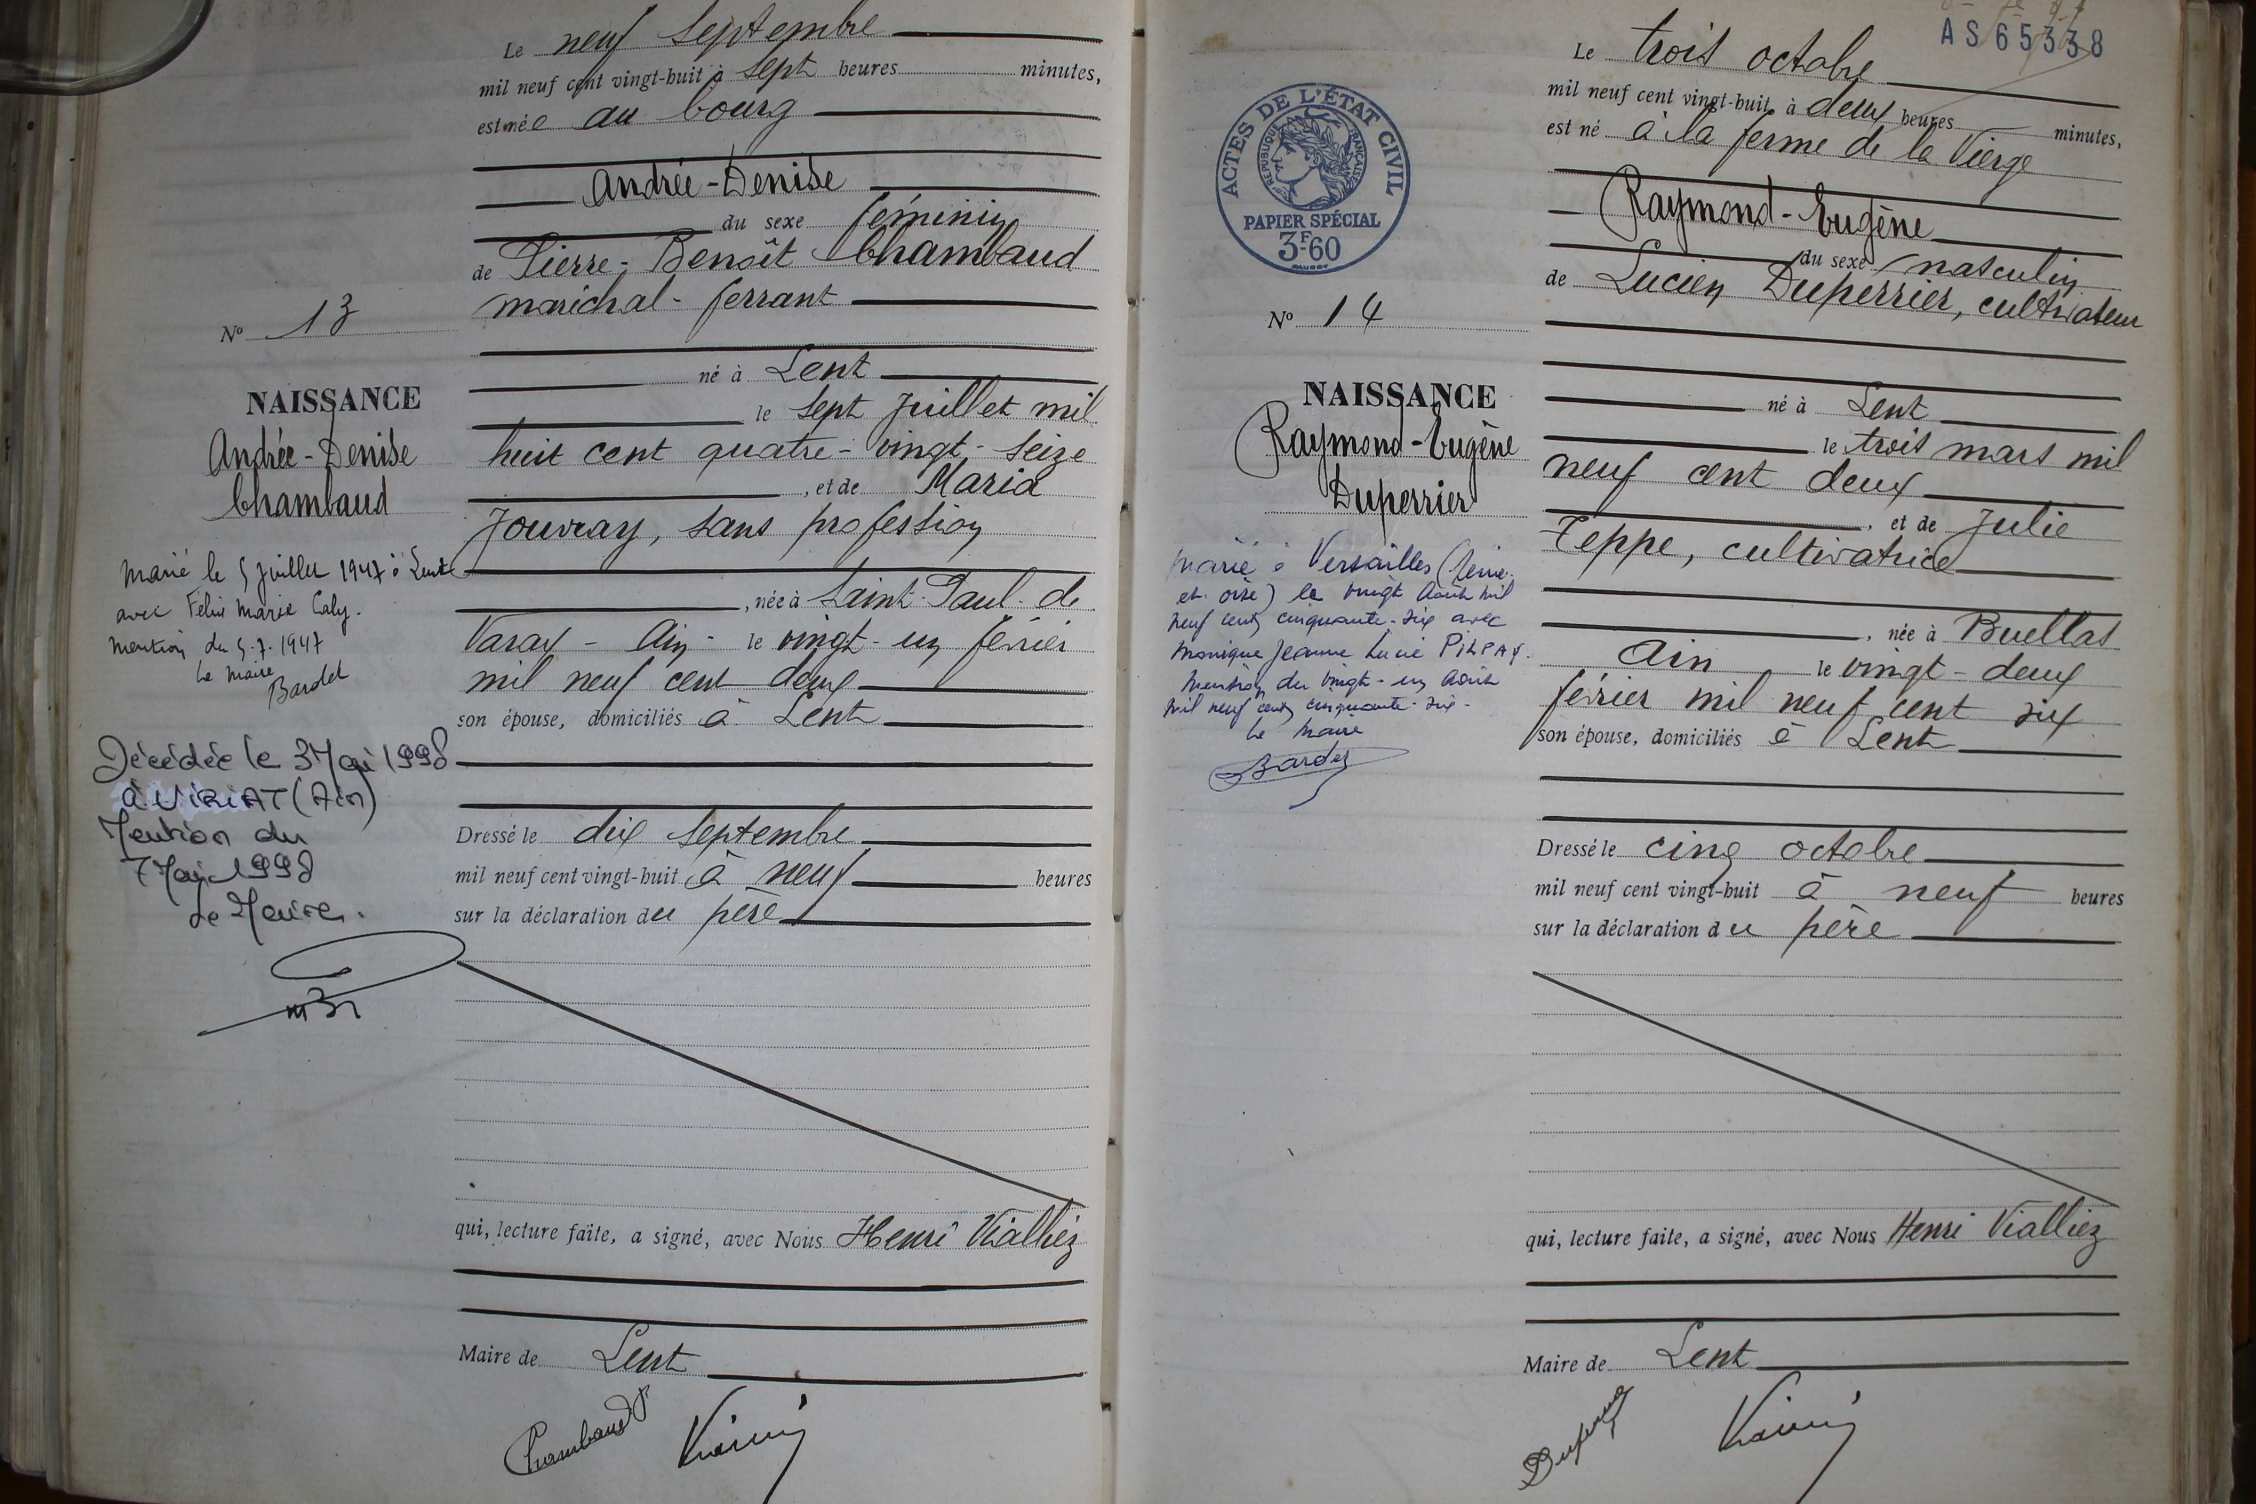 Le neuf Septembre
mil neuf cent vingt-huit à sept heures minutes,
est née au bourg
Andrée-Denise
du sexe féminin
de Pierre-Benoît Chambaud
maréchal-ferrant
né à Lent
le sept Juillet mil
huit cent quatre-vingt-seize
, et de Maria
Jouvray, sans profession
, née à Saint-Paul-de
Varax - Ain - le vingt-un février
mil neuf cent deux
son épouse, domiciliés à Lent
Dressé le dix septembre
mil neuf cent vingt-huit à neuf heures
sur la déclaration du père
qui, lecture faite, a signé, avec Nous Henri Vialliez
Maire de Lent
Chambaud P
N° 13
NAISSANCE
Andrée-Denise
Chambaud
Marié le 5 juillet 1947 à Lent
avec Félix Marie Caly.
Mention du 5.7.1947
Le Maire
Bardet
Décédée le 3 Mai 1998
à VIRIAT (Ain)
Mention du
7 Mai 1998
Le Maire.
AS65338
Le trois octobre
mil neuf cent vingt-huit, à deux heures minutes,
est né à la ferme de la Vierge
Raymond-Eugène
du sexe masculin
de Lucien Duperrier, cultivateur
né à Lent
le trois mars mil
neuf cent deux
, et de Julie
Teppe, cultivatrice
, née à Buellas
Ain le vingt-deux
février mil neuf cent six
son épouse, domiciliés à Lent
Dressé le cinq octobre
mil neuf cent vingt-huit à neuf heures
sur la déclaration du père
qui, lecture faite, a signé, avec Nous Henri Vialliez
Maire de Lent
ACTES DE L'ÉTAT CIVIL
RÉPUBLIQUE FRANÇAISE
PAPIER SPÉCIAL
3F60
N° 14
NAISSANCE
Raymond-Eugène
Duperrier
Marié à Versailles (Seine-
et-Oise) le vingt Août mil
neuf cent cinquante-six avec
Monique Jeanne Lucie PILPAY.
Mention du vingt-un Août
mil neuf cent cinquante-six.
Le Maire
Bardet